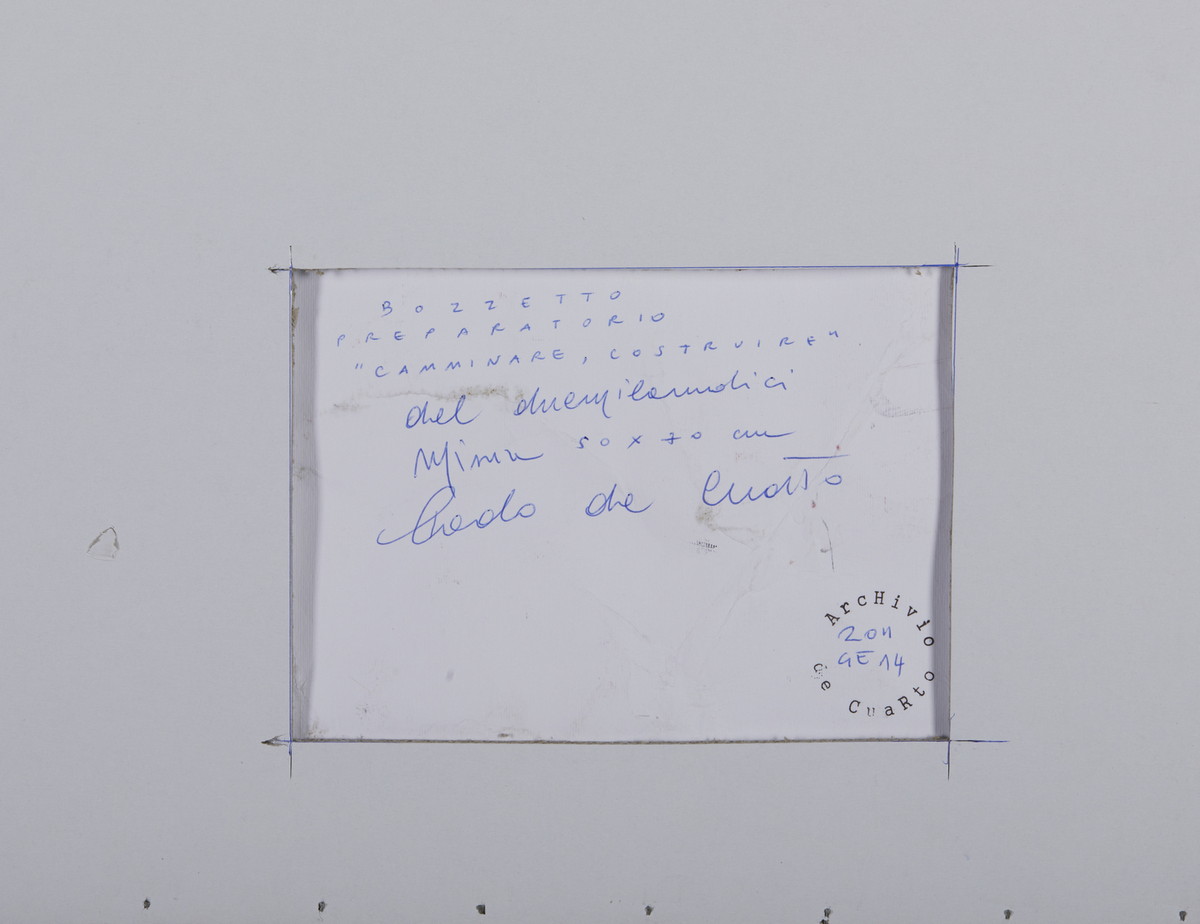 BOZZETTO
PREPARATORIO
"CAMMINARE, COSTRUIRE".
del duemilaundici
50 x 70 cm
de Cuarto
ArcHivio
de CuaRto
2011
GE 14